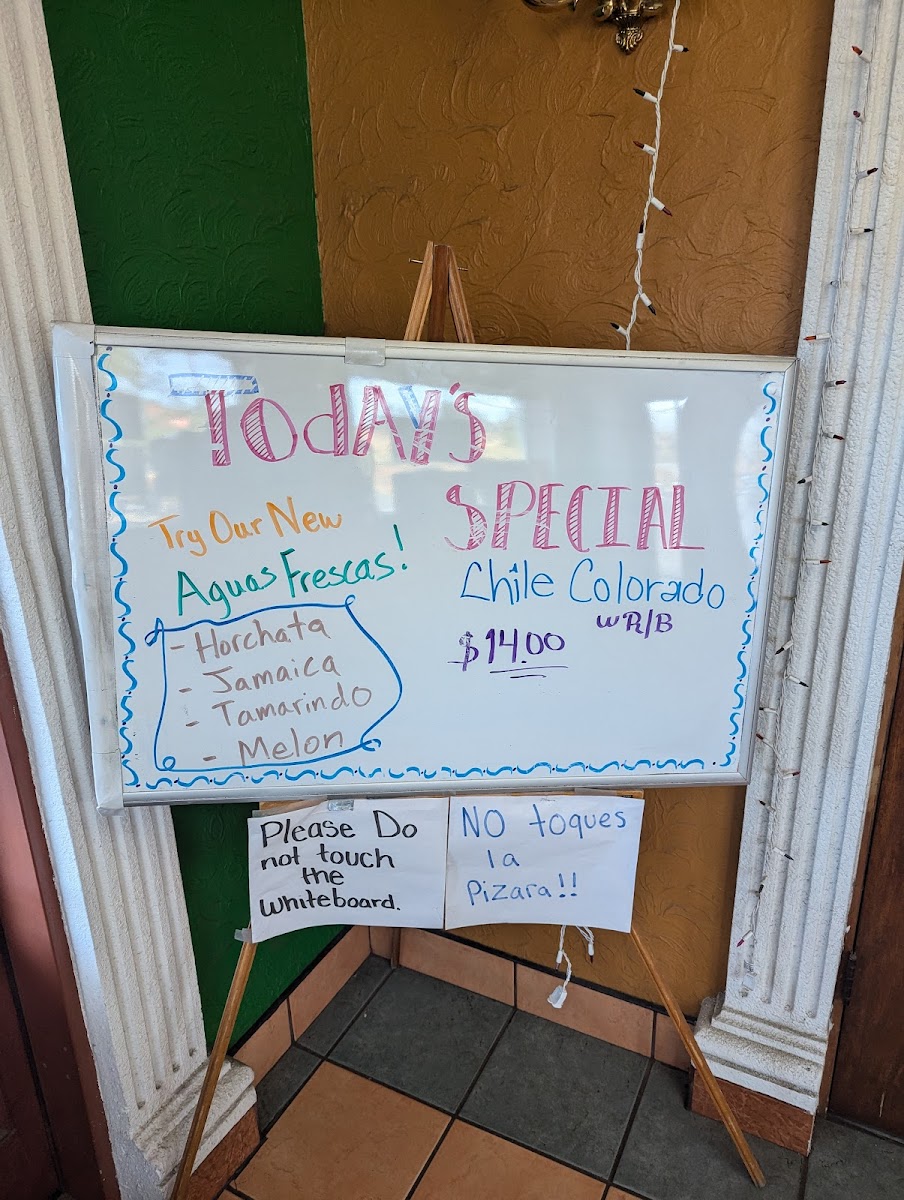 TodAY's
SPECIAL
Try Our New
Aguas Frescas!
- Horchata
- Jamaica
- Tamarindo
- Melon
Chile Colorado
w R/B
$14.00
Please Do
not touch
the
whiteboard.
NO toques
la
Pizara!!